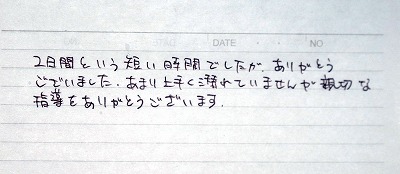 DATE NO
2日間という短い時間でしたが、ありがとう
ございました。あまり上手く滑れていませんが親切な
指導をありがとうございます。